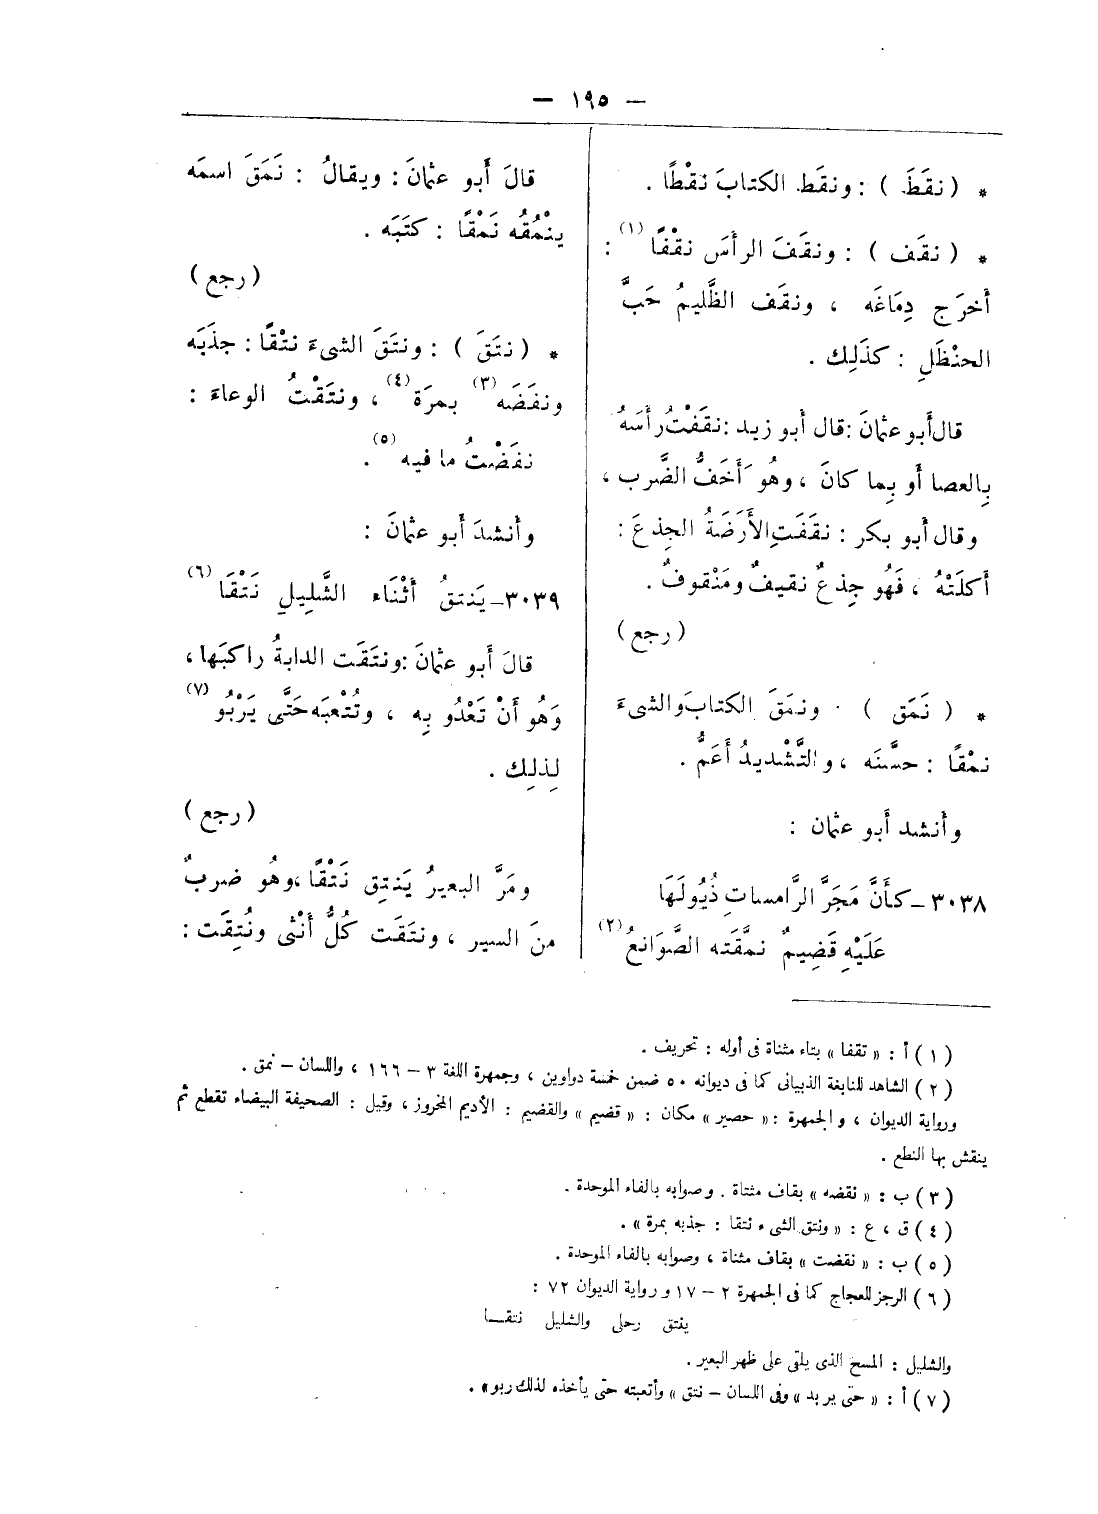 — ١٩٥ —
* ( نقَطَ ) : ونقَط الكتابَ نقْطًا .
* ( نقَف ) : ونقَفَ الرأسَ نقْفًا (١) :
أخرَج دِمَاغَه ، ونقَف الظَّليمُ حَبَّ
الحنْظَلِ : كذَلِك .
قال أَبو عثمانَ : قال أبو زيد : نقَفْتُ رأسَهُ
بِالعصا أو بِما كانَ ، وهُو أَخَفُّ الضَّرب ،
وقال أبو بكر : نقَفَتِ الأَرَضَةُ الجِذعَ :
أكلَتْهُ ، فَهُو جِذعٌ نقيفٌ ومَنْقوفٌ .
( رجع )
* ( نَمَق ) . ونمَقَ الكتابَ والشىءَ
نمْقًا : حسَّنَه ، والتَّشْديدُ أَعَمُّ .
وأنشد أبو عثمان :
٣٠٣٨ـ كأَنَّ مَجَرَّ الرَّامساتِ ذُيُولَهَا
عَلَيْهِ قَضِيمٌ نمَّقَته الصَّوَانعُ (٢)
قالَ أَبو عثمانَ : ويقالُ : نَمَقَ اسمَه
ينْمُقُه نَمْقًا : كتَبَه .
( رجع )
* ( نتَقَ ) : ونتَقَ الشىءَ نتْقًا : جذَبَه
ونفَضَه (٣) بمرَة (٤) ، ونتَقْتُ الوعاءَ :
نفَضْتُ ما فيه (٥) .
وأنشدَ أبو عثمانَ :
٣٠٣٩ـ يَنتقُ أَثْنَاء الشَّلِيلِ نَتْقَا (٦)
قالَ أَبو عثمانَ : ونتَقَت الدابةُ راكبَها ،
وَهُو أَنْ تَعْدُو بِه ، وتُتْعِبَه حَتَّى يَرْبُو (٧)
لِذلِك .
( رجع )
ومَرَّ البعيرُ يَنتِق نَتْقًا ، وهُو ضربٌ
منَ السير ، ونتَقَت كُلُّ أُنْثى ونُتِقَت :
( ١ ) أ : « تقفا » بتاء مثناة فى أوله : تحريف .
( ٢ ) الشاهد للنابغة الذبيانى كما فى ديوانه ٥٠ ضمن خمسة دواوين ، وجمهرة اللغة ٣ – ١٦٦ ، واللسان – نمق .
ورواية الديوان ، والجمهرة : « حصير » مكان : « قضيم » والقضيم : الأديم المخروز ، وقيل : الصحيفة البيضاء تقطع ثم
ينقش بها النطع .
( ٣ ) ب : « نقضه » بقاف مثناة . وصوابه بالفاء الموحدة .
( ٤ ) ق ، ع : « ونتق الشىء نتقا : جذبه بمرة » .
( ٥ ) ب : « نقضت » بقاف مثناة ، وصوابه بالفاء الموحدة .
( ٦ ) الرجز للعجاج كما فى الجمهرة ٢ – ١٧ ورواية الديوان ٧٢ :
ينتق رحلى والشليل نتقـا
والشليل : المسح الذى يلقى على ظهر البعير .
( ٧ ) أ : « حتى يربد » وفى اللسان – نتق » وأتعبته حتى يأخذه لذلك ربو » .